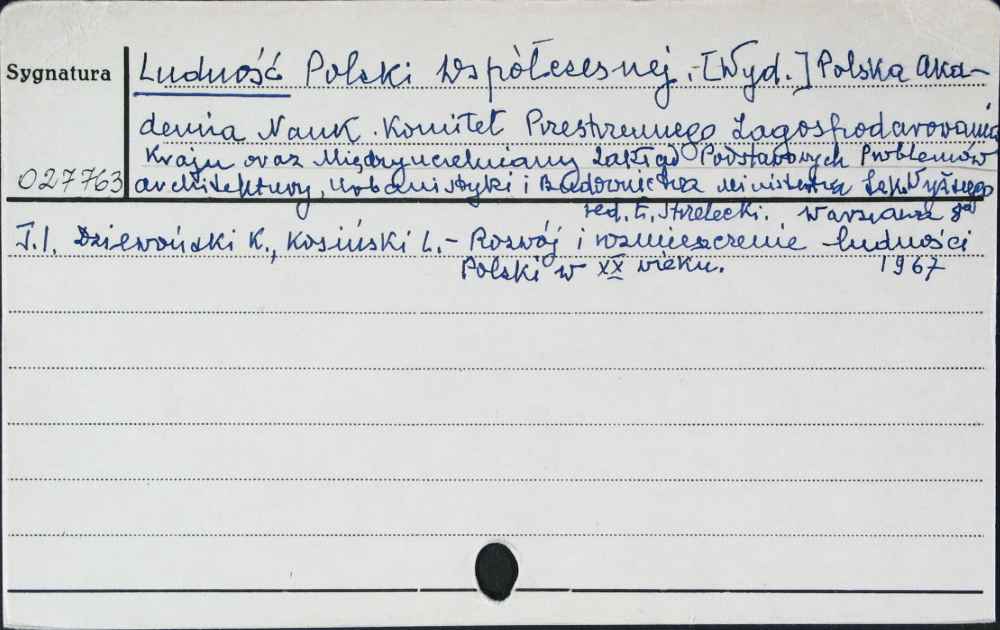 Sygnatura
Ludność Polski współczesnej. - [Wyd.] Polska Aka-
demia Nauk. Komitet Przestrzennego Zagospodarowania
Kraju oraz Międzyuczelniany Zakład Podstawowych Problemów
027763
architektury, Urbanistyki i Budownictwa Ministerstwa Szk. Wyższego
red. E. Strzelecki. Warszawa 8°
T.1. Dziewoński K., Kosiński L. - Rozwój i rozmieszczenie ludności
Polski w XX wieku. 1967